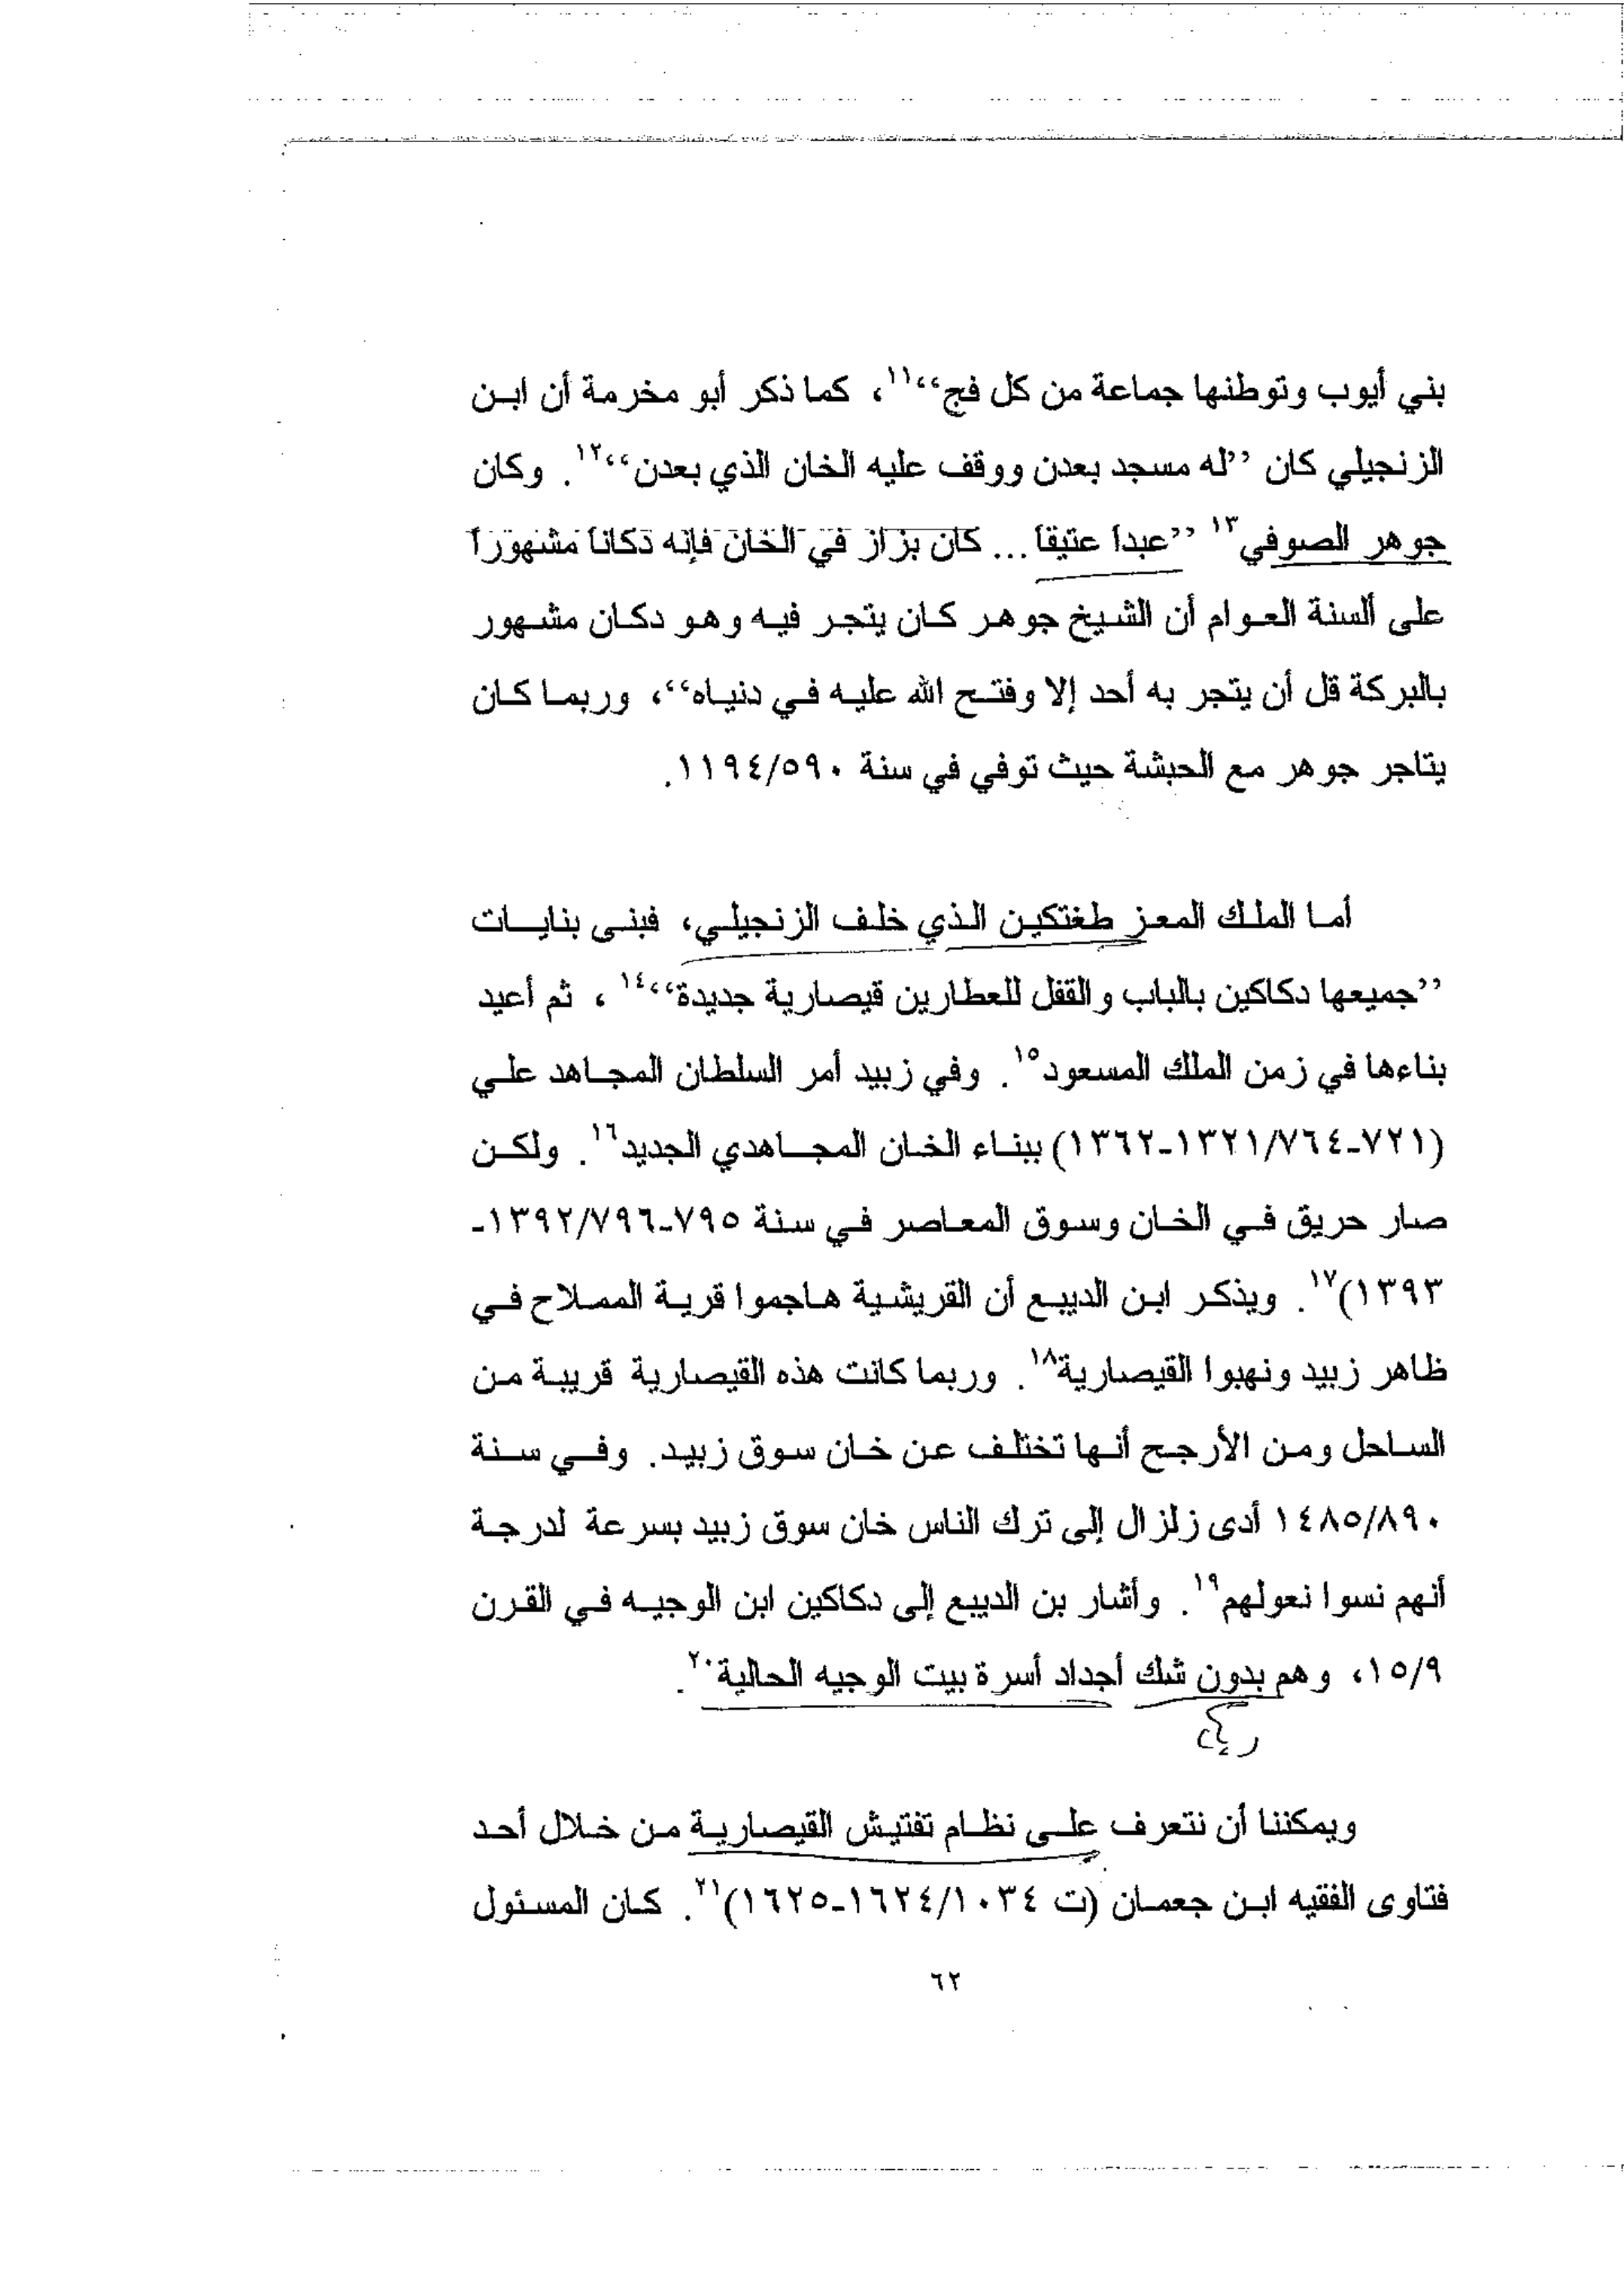 بني أيوب وتوطنها جماعة من كل فج“١١، كما ذكر أبو مخرمة أن ابن
الزنجيلي كان ”له مسجد بعدن ووقف عليه الخان الذي بعدن“١٢. وكان
جوهر الصوفي١٣ ”عبداً عتيقاً... كان بزاز في الخان فإنه دكاناً مشهوراً
على ألسنة العوام أن الشيخ جوهر كان يتجر فيه وهو دكان مشهور
بالبركة قل أن يتجر به أحد إلا وفتح الله عليه في دنياه“، وربما كان
يتاجر جوهر مع الحبشة حيث توفي في سنة ١١٩٤/٥٩٠.
أما الملك المعز طغتكين الذي خلف الزنجيلي، فبنى بنايات
”جميعها دكاكين بالباب والقفل للعطارين قيصارية جديدة“١٤، ثم أعيد
بناءها في زمن الملك المسعود١٥. وفي زبيد أمر السلطان المجاهد علي
(٧٢١-١٣٢١/٧٦٤-١٣٦٢) ببناء الخان المجاهدي الجديد١٦. ولكن
صار حريق في الخان وسوق المعاصر في سنة ٧٩٥-١٣٩٢/٧٩٦-
١٣٩٣)١٧. ويذكر ابن الديبع أن القريشية هاجموا قرية المملاح في
ظاهر زبيد ونهبوا القيصارية١٨. وربما كانت هذه القيصارية قريبة من
الساحل ومن الأرجح أنها تختلف عن خان سوق زبيد. وفي سنة
١٤٨٥/٨٩٠ أدى زلزال إلى ترك الناس خان سوق زبيد بسرعة لدرجة
أنهم نسوا نعولهم١٩. وأشار بن الديبع إلى دكاكين ابن الوجيه في القرن
١٥/٩، وهم بدون شك أجداد أسرة بيت الوجيه الحالية٢٠.
ويمكننا أن نتعرف على نظام تفتيش القيصارية من خلال أحد
فتاوى الفقيه ابن جعمان (ت ١٦٢٤/١٠٣٤-١٦٢٥)٢١. كان المسئول
٦٢